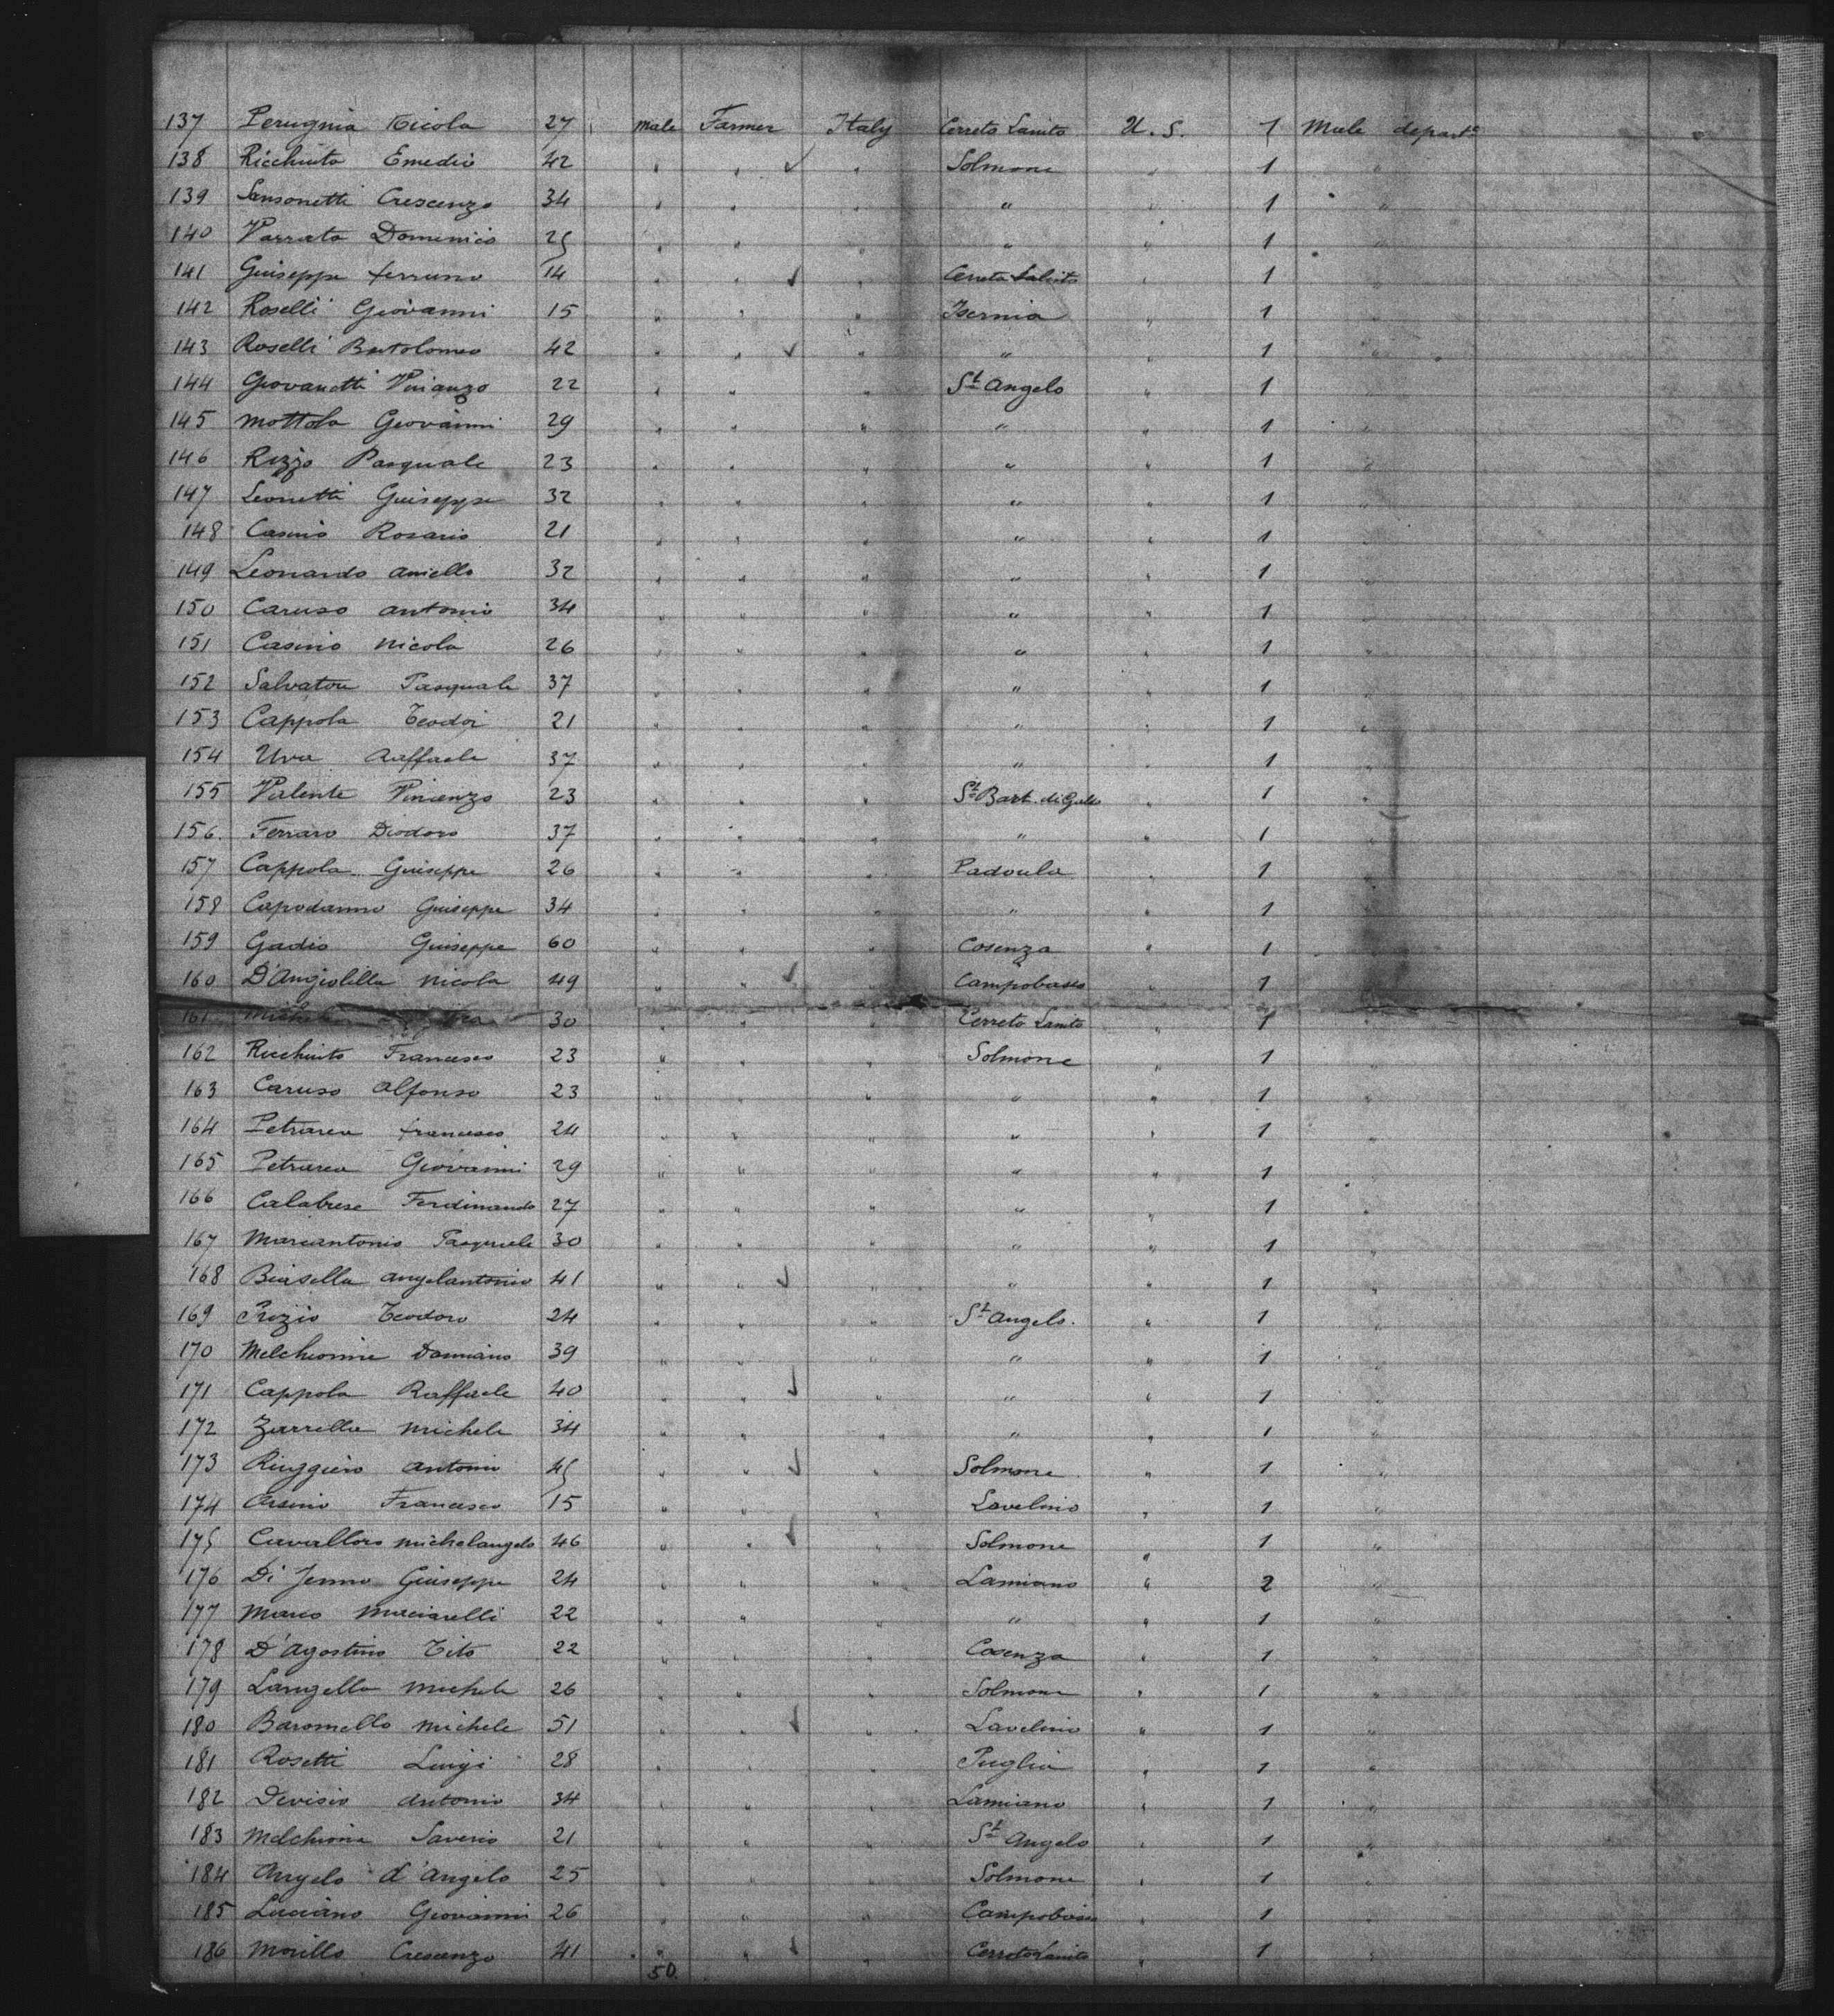 137 Perugnia Nicola 27 male Farmer Italy Cerreto Sanito U.S. 1 Mule depart.
138 Ricchiuto Emedio 42 " " ✓ " Solmone " 1 "
139 Sansonetti Crescenzo 34 " " " " " 1 "
140 Varrato Domenico 25 " " " " " 1 "
141 Guiseppe ferruno 14 " " ✓ " Cerreto " 1 "
142 Roselli Giovanni 15 " " " Isernia " 1 "
143 Roselli Bartolomeo 42 " " ✓ " " " 1 "
144 Giovanetti Vinanzo 22 " " " St Angelo " 1 "
145 Mottola Giovanni 29 " " " " " 1 "
146 Rizzo Pasquale 23 " " " " " 1 "
147 Leonetti Guiseppe 32 " " " " " 1 "
148 Casino Rosario 21 " " " " " 1 "
149 Leonardo Aniello 32 " " " " " 1 "
150 Caruso Antonio 34 " " " " " 1 "
151 Casino Nicola 26 " " " " " 1 "
152 Salvatore Pasquale 37 " " " " " 1 "
153 Cappola Teodor 21 " " " " " 1 "
154 Uva Raffaele 37 " " " " " 1 "
155 Valente Vinienzo 23 " " " St Bart. di Gallo " 1 "
156. Ferraro Diodoro 37 " " " " " 1 "
157 Cappola Guiseppe 26 " " " Padoula " 1 "
158 Capodanno Guiseppe 34 " " " " " 1 "
159 Gadio Guiseppe 60 " " " Cosenza " 1 "
160 D'Angiolilla Nicola 49 " " ✓ " Campobasso " 1 "
161 30 " " " Cerreto Sanito " 1 "
162 Ricchiuto Francesco 23 " " " Solmone " 1 "
163 Caruso Alfonso 23 " " " " " 1 "
164 Petrarca francesco 24 " " " " " 1 "
165 Petrarca Giovanni 29 " " " " " 1 "
166 Calabrese Ferdinando 27 " " " " " 1 "
167 Marcantonio Pasquale 30 " " " " " 1 "
168 Biasella Angelantonio 41 " " ✓ " " " 1 "
169 Prozio Teodoro 24 " " " St Angelo. " 1 "
170 Melchionne Damiano 39 " " " " " 1 "
171 Cappola Raffaele 40 " " ✓ " " " 1 "
172 Zarrella Michele 34 " " " " " 1 "
173 Ruggiero Antonio 45 " " ✓ " Solmone " 1 "
174 Orsino Francesco 15 " " " Lavelino " 1 "
175 Cavalloro Michelangelo 46 " " ✓ " Solmone " 1 "
176 Di Jenno Giuseppe 24 " " " Lamiano " 2 "
177 Marco Mucciarelli 22 " " " " " 1 "
178 D'Agostino Tito 22 " " " Cosenza " 1 "
179 Langella Michele 26 " " " Solmone " 1 "
180 Baromello Michele 51 " " ✓ " Lavelino " 1 "
181 Rosetti Luigi 28 " " " Puglia " 1 "
182 Devisio Antonio 34 " " " Lamiano " 1 "
183 Melchione Saverio 21 " " " St Angelo " 1 "
184 Angelo d'Angelo 25 " " " Solmone " 1 "
185 Luciano Giovanni 26 " " " Campobasso " 1 "
186 Morillo Crescenzo 41 " " ✓ " Cerreto Sanito " 1 "
50